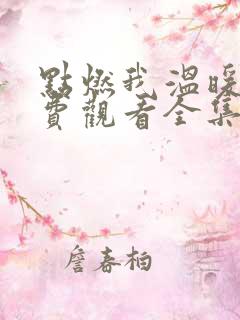 點燃我溫暖
費觀看全集
詹春柏